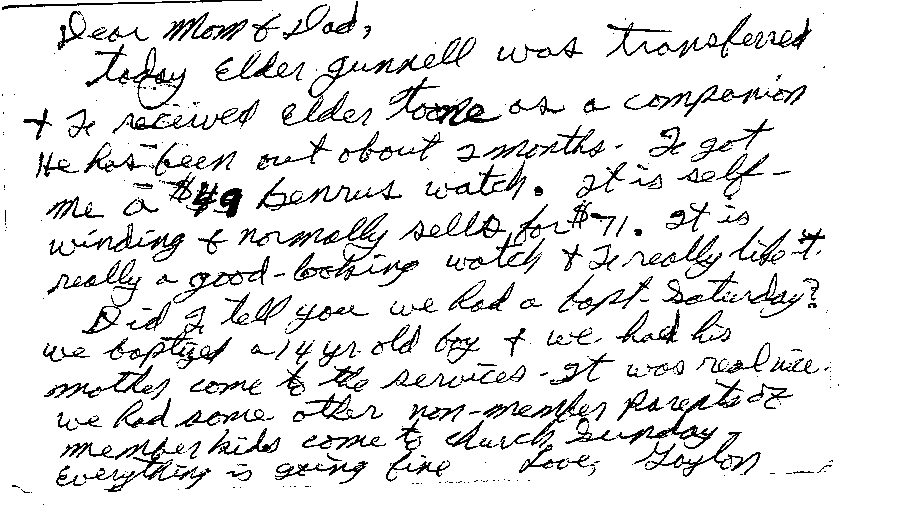 Dear Mom & Dad,
today Elder Gunnell was transferred
& I received Elder Toone as a companion
He has been out about 2 months. I got
me a $49 Benrus watch. It is self-
winding & normally sells for $71. It is
really a good-looking watch & I really like it.
Did I tell you we had a bapt. Saturday?
we baptized a 14 yr. old boy & we had his
mother come to the services - It was real nice.
we had some other non-member parents of
member kids come to church Sunday.
Everything is going fine Love, Gaylon